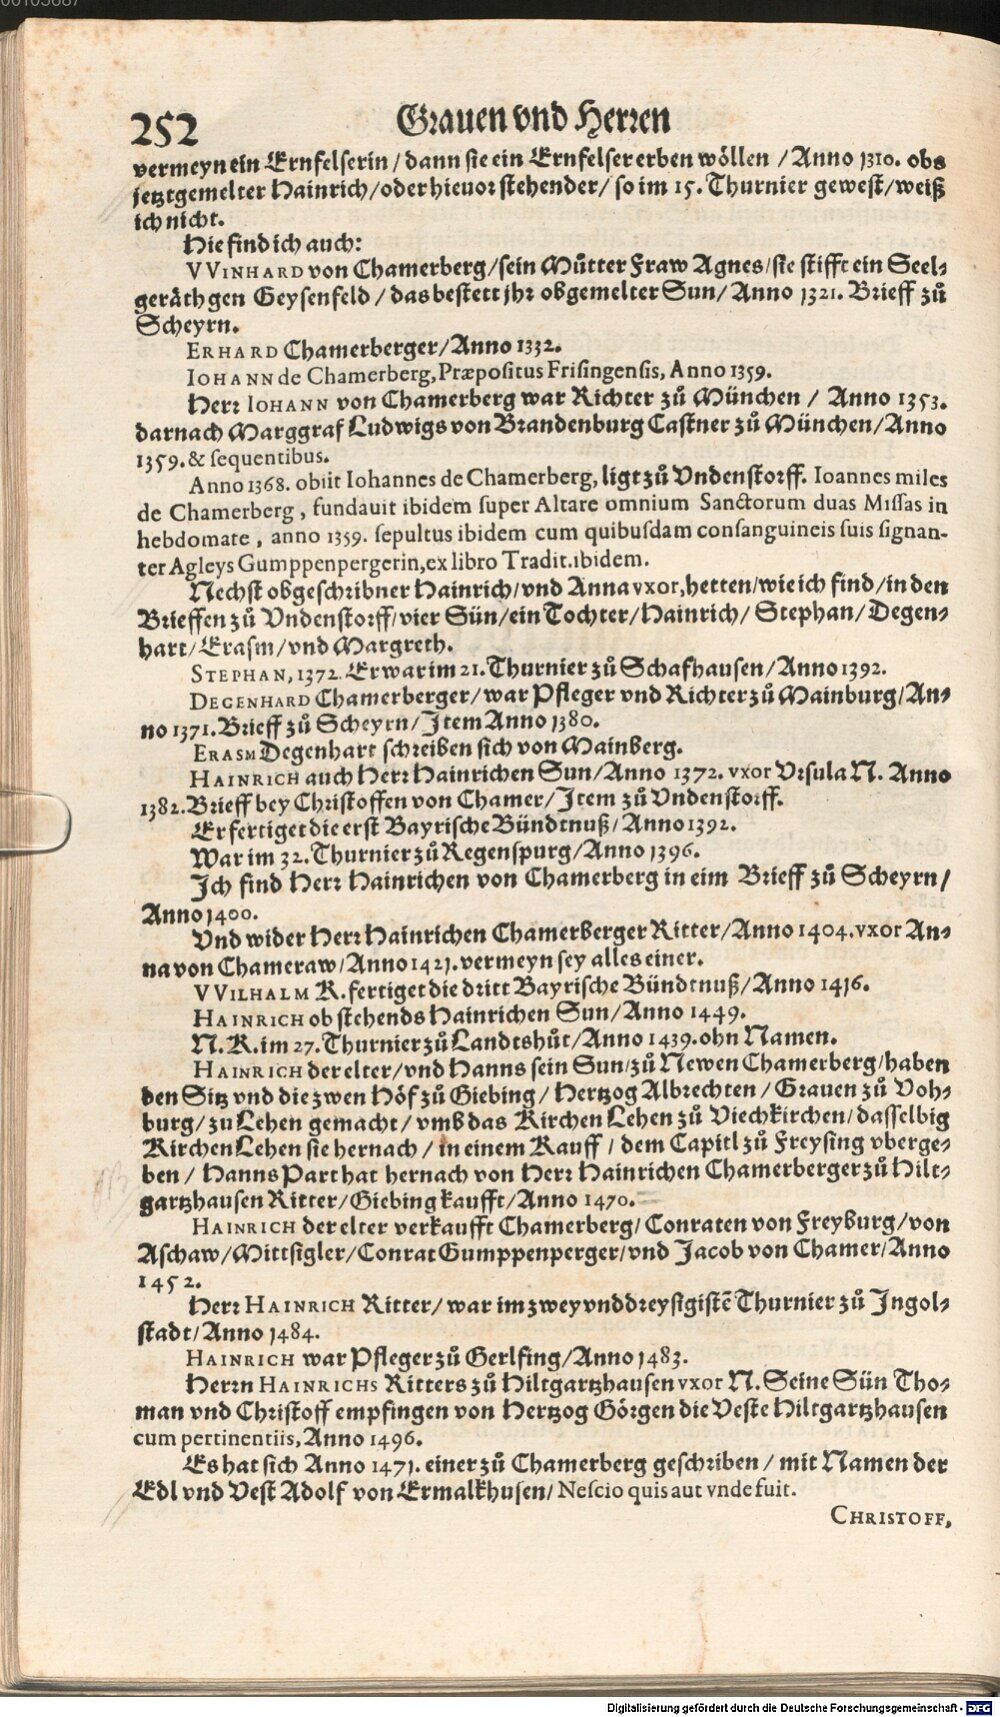 00105687
252 Grauen vnd Herren
vermeyn ein Ernfelserin / dann sie ein Ernfelser erben wöllen / Anno 1310. obs
jetztgemelter Hainrich / oder hieuor stehender / so im 15. Thurnier gewest / weiß
ich nicht.
Hie find ich auch:
VVINHARD von Chamerberg / sein Můtter Fraw Agnes / sie stifft ein Seel-
geräth gen Geysenfeld / das bestett jhr obgemelter Sun / Anno 1321. Brieff zů
Scheyrn.
ERHARD Chamerberger / Anno 1332.
IOHANN de Chamerberg, Præpositus Frisingensis, Anno 1359.
Herr IOHANN von Chamerberg war Richter zů München / Anno 1353.
darnach Marggraf Ludwigs von Brandenburg Castner zů München / Anno
1359. & sequentibus.
Anno 1368. obiit Iohannes de Chamerberg, ligt zů Vndenstorff. Ioannes miles
de Chamerberg, fundauit ibidem super Altare omnium Sanctorum duas Missas in
hebdomate, anno 1359. sepultus ibidem cum quibusdam consanguineis suis signan-
ter Agleys Gumppenpergerin, ex libro Tradit. ibidem.
Nechst obgeschribner Hainrich / vnd Anna vxor, hetten / wie ich find / in den
Brieffen zů Vndenstorff / vier Sün / ein Tochter / Hainrich / Stephan / Degen-
hart / Erasm / vnd Margreth.
STEPHAN, 1372. Er war im 21. Thurnier zů Schafhausen / Anno 1392.
DEGENHARD Chamerberger / war Pfleger vnd Richter zů Mainburg / An-
no 1371. Brieff zů Scheyrn / Item Anno 1380.
ERASM Degenhart schreiben sich von Mainberg.
HAINRICH auch Herr Hainrichen Sun / Anno 1372. vxor Vrsula N. Anno
1382. Brieff bey Christoffen von Chamer / Item zů Vndenstorff.
Er fertiget die erst Bayrische Bündtnuß / Anno 1392.
War im 32. Thurnier zů Regenspurg / Anno 1396.
Ich find Herr Hainrichen von Chamerberg in eim Brieff zů Scheyrn /
Anno 1400.
Vnd wider Herr Hainrichen Chamerberger Ritter / Anno 1404. vxor An-
na von Chameraw / Anno 1421. vermeyn sey alles einer.
VVILHALM K. fertiget die dritt Bayrische Bündtnuß / Anno 1416.
HAINRICH obstehends Hainrichen Sun / Anno 1449.
N. K. im 27. Thurnier zů Landtshůt / Anno 1439. ohn Namen.
HAINRICH der elter / vnd Hanns sein Sun / zů Newen Chamerberg / haben
den Sitz vnd die zwen Höf zů Giebing / Hertzog Albrechten / Grauen zů Voh-
burg / zu Lehen gemacht / vmb das Kirchen Lehen zů Viechkirchen / dasselbig
Kirchen Lehen sie hernach / in einem Kauff / dem Capitl zů Freysing vberge-
ben / Hanns Part hat hernach von Herr Hainrichen Chamerberger zů Hilt-
gartzhausen Ritter / Giebing kaufft / Anno 1470.
HAINRICH der elter verkaufft Chamerberg / Conraten von Freyburg / von
Aschaw / Mittsigler / Conrat Gumppenperger / vnd Jacob von Chamer / Anno
1452.
Herr HAINRICH Ritter / war im zwey vnd dreysigistē Thurnier zů Ingol-
stadt / Anno 1484.
HAINRICH war Pfleger zů Gerlfing / Anno 1483.
Herrn HAINRICHS Ritters zů Hiltgartzhausen vxor N. Seine Sün Tho-
man vnd Christoff empfingen von Hertzog Görgen die Veste Hiltgartzhausen
cum pertinentiis, Anno 1496.
Es hat sich Anno 1471. einer zů Chamerberg geschriben / mit Namen der
Edl vnd Vest Adolf von Ermalkhusen / Nescio quis aut vnde fuit.
CHRISTOFF,
Digitalisierung gefördert durch die Deutsche Forschungsgemeinschaft - DFG